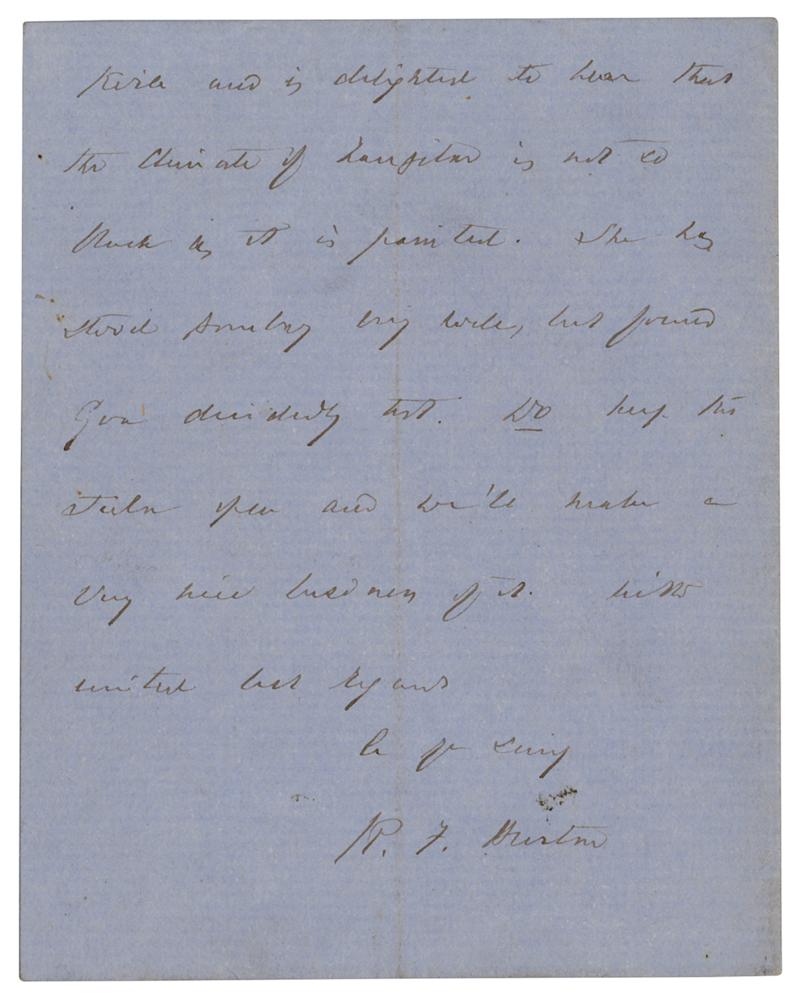 Kirk and is delighted to hear that
the climate of Zanzibar is not so
black as it is painted. She has
stood Bombay very well, but found
Goa decidedly hot. Do keep this
open and we'll make a
very nice business of it. With
united best regards
R. F. Burton